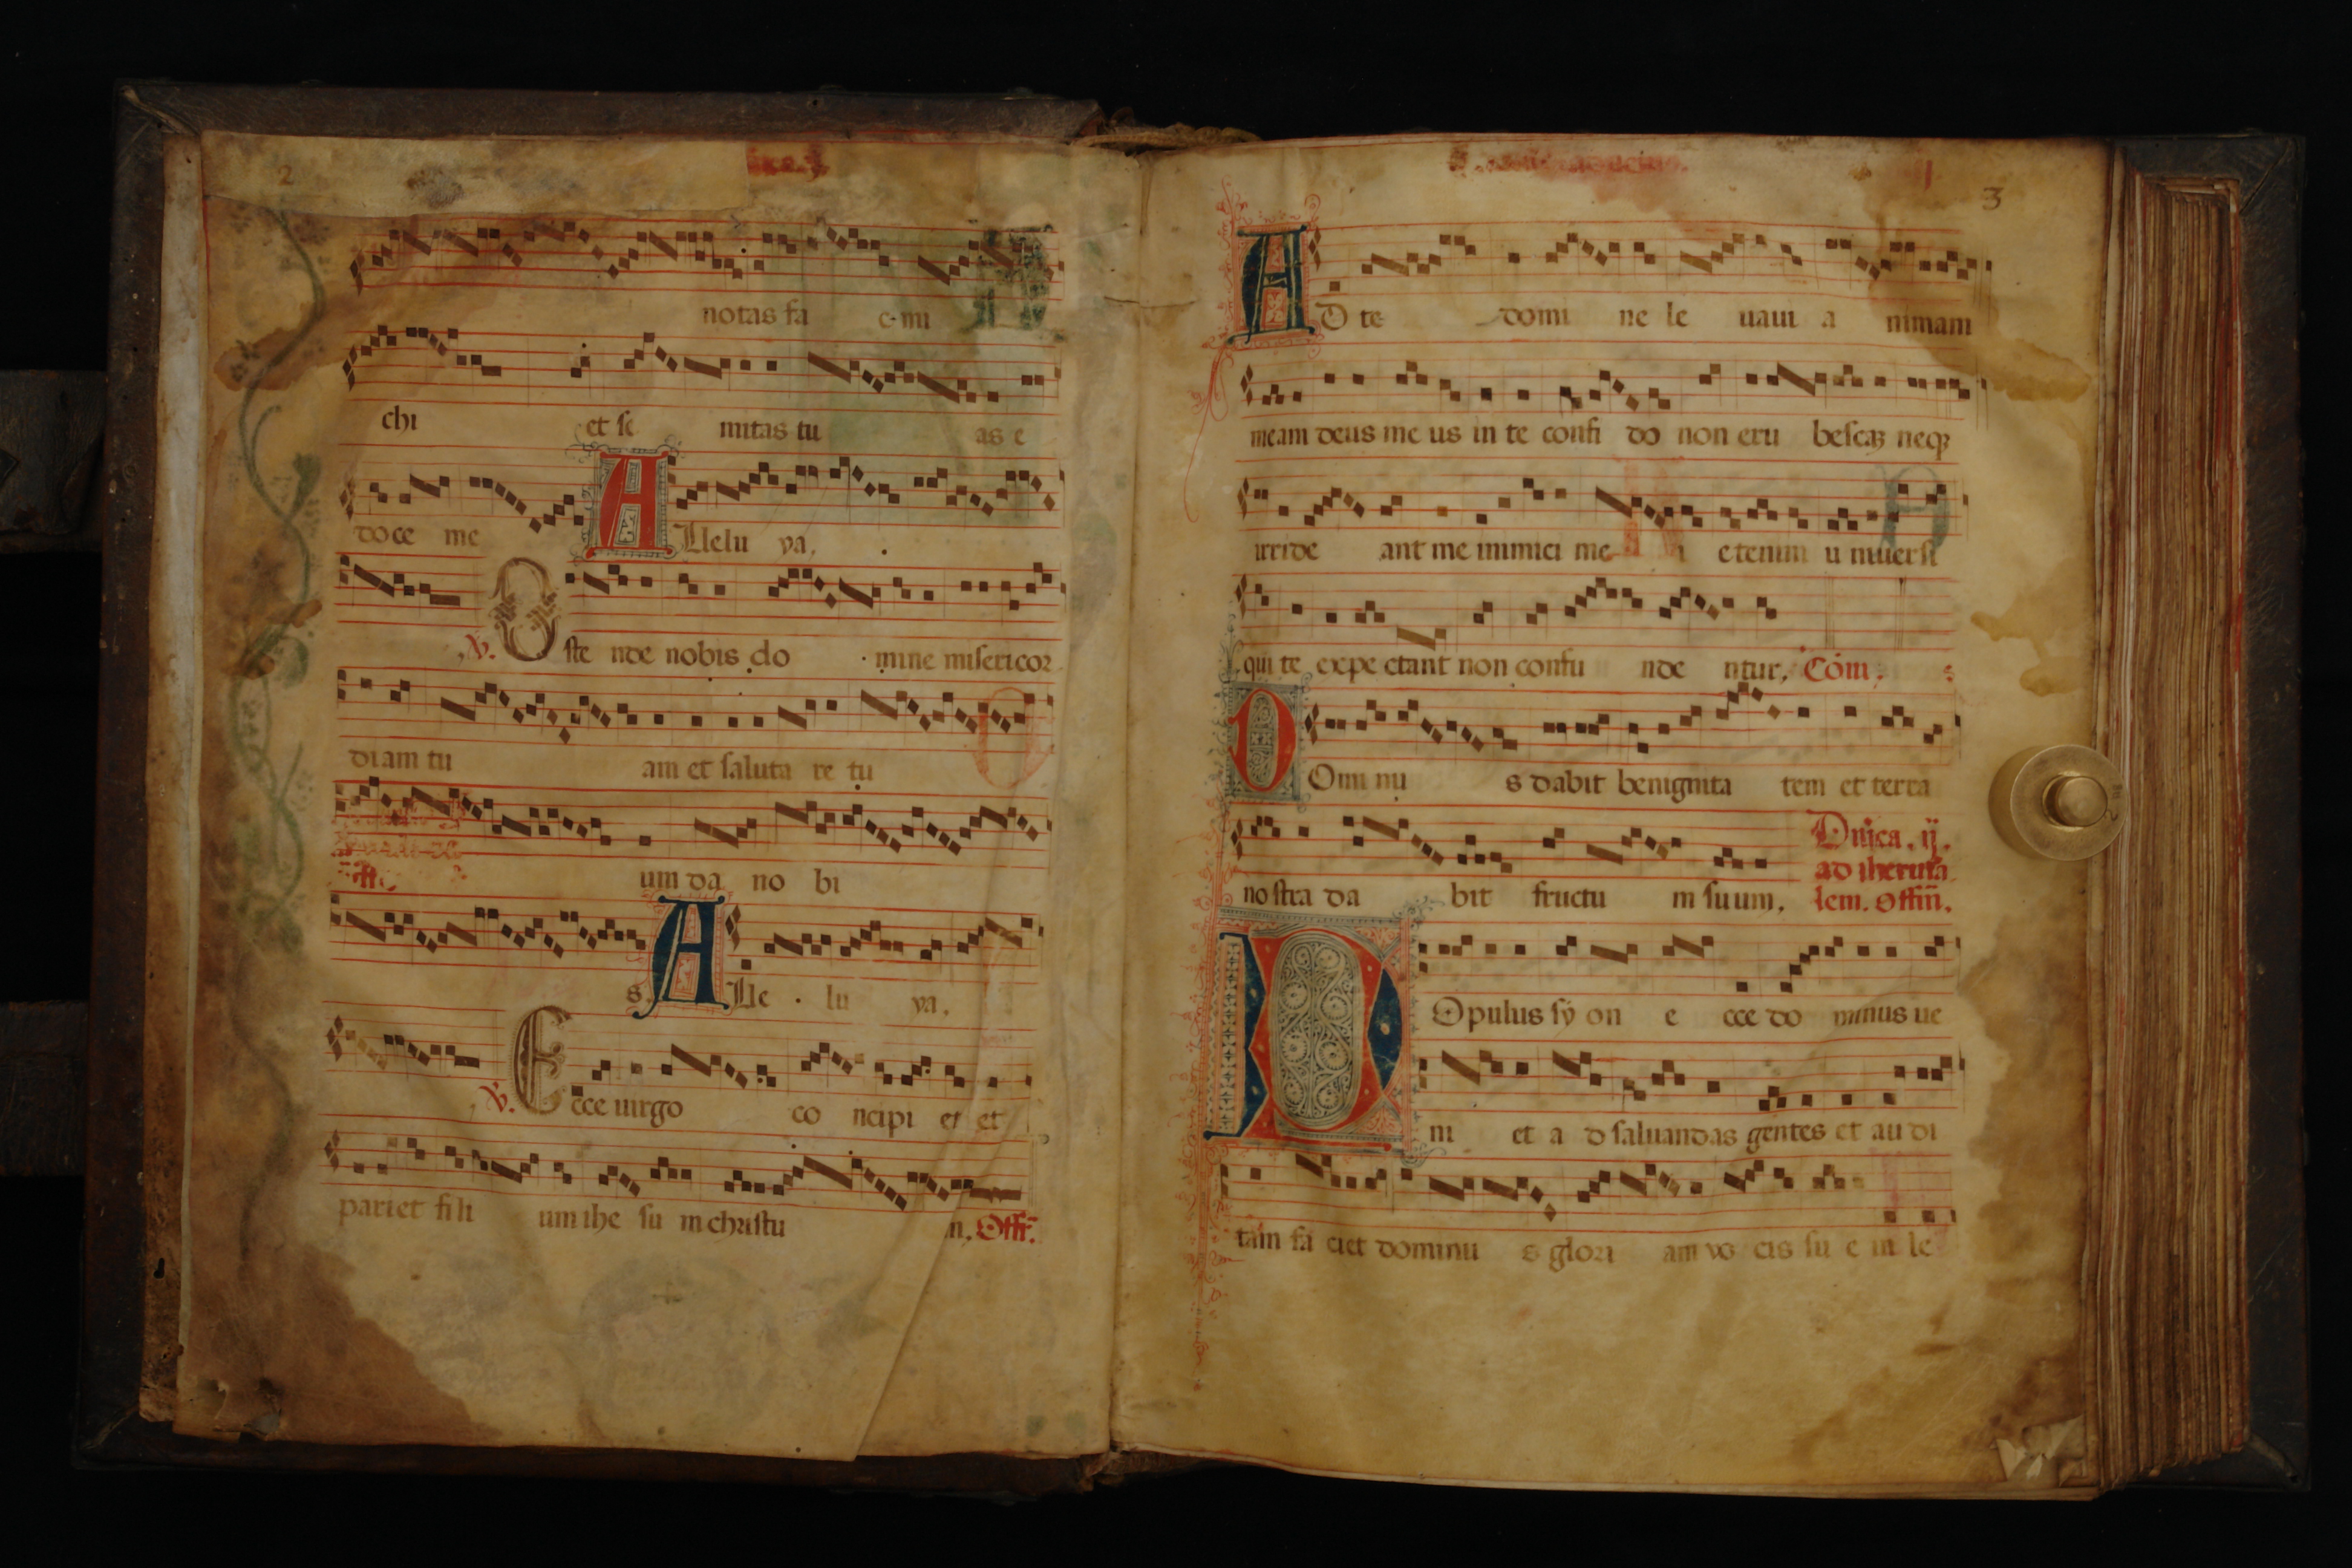 2
notas fa c mi
chi et se mitas tu as e
doce me Allelu ya.
℣. Oste nde nobis do mine misericor
diam tu am et saluta re tu
um da no bi
s. Alle lu ya.
℣. Ecce uirgo co ncipi et et
pariet fili um ihe su m christu m, Offr̄.
3
AD te domi ne le uaui a nimam
meam deus me us in te confi do non eru bescaȝ neqȝ
irride ant me inimici me i etenim u niuersi
qui te expe ctant non confu nde ntur, Com̄.
DOmi nu s dabit benignita tem et terra
nostra da bit fructu m suum.
Dn̄ica. ij.
ad iherusa
lem. offm̄.
POpulus sy on e cce do minus ue
ni et a d saluandas gentes et au di
tam fa ciet dominu s glori am vo cis su e in le